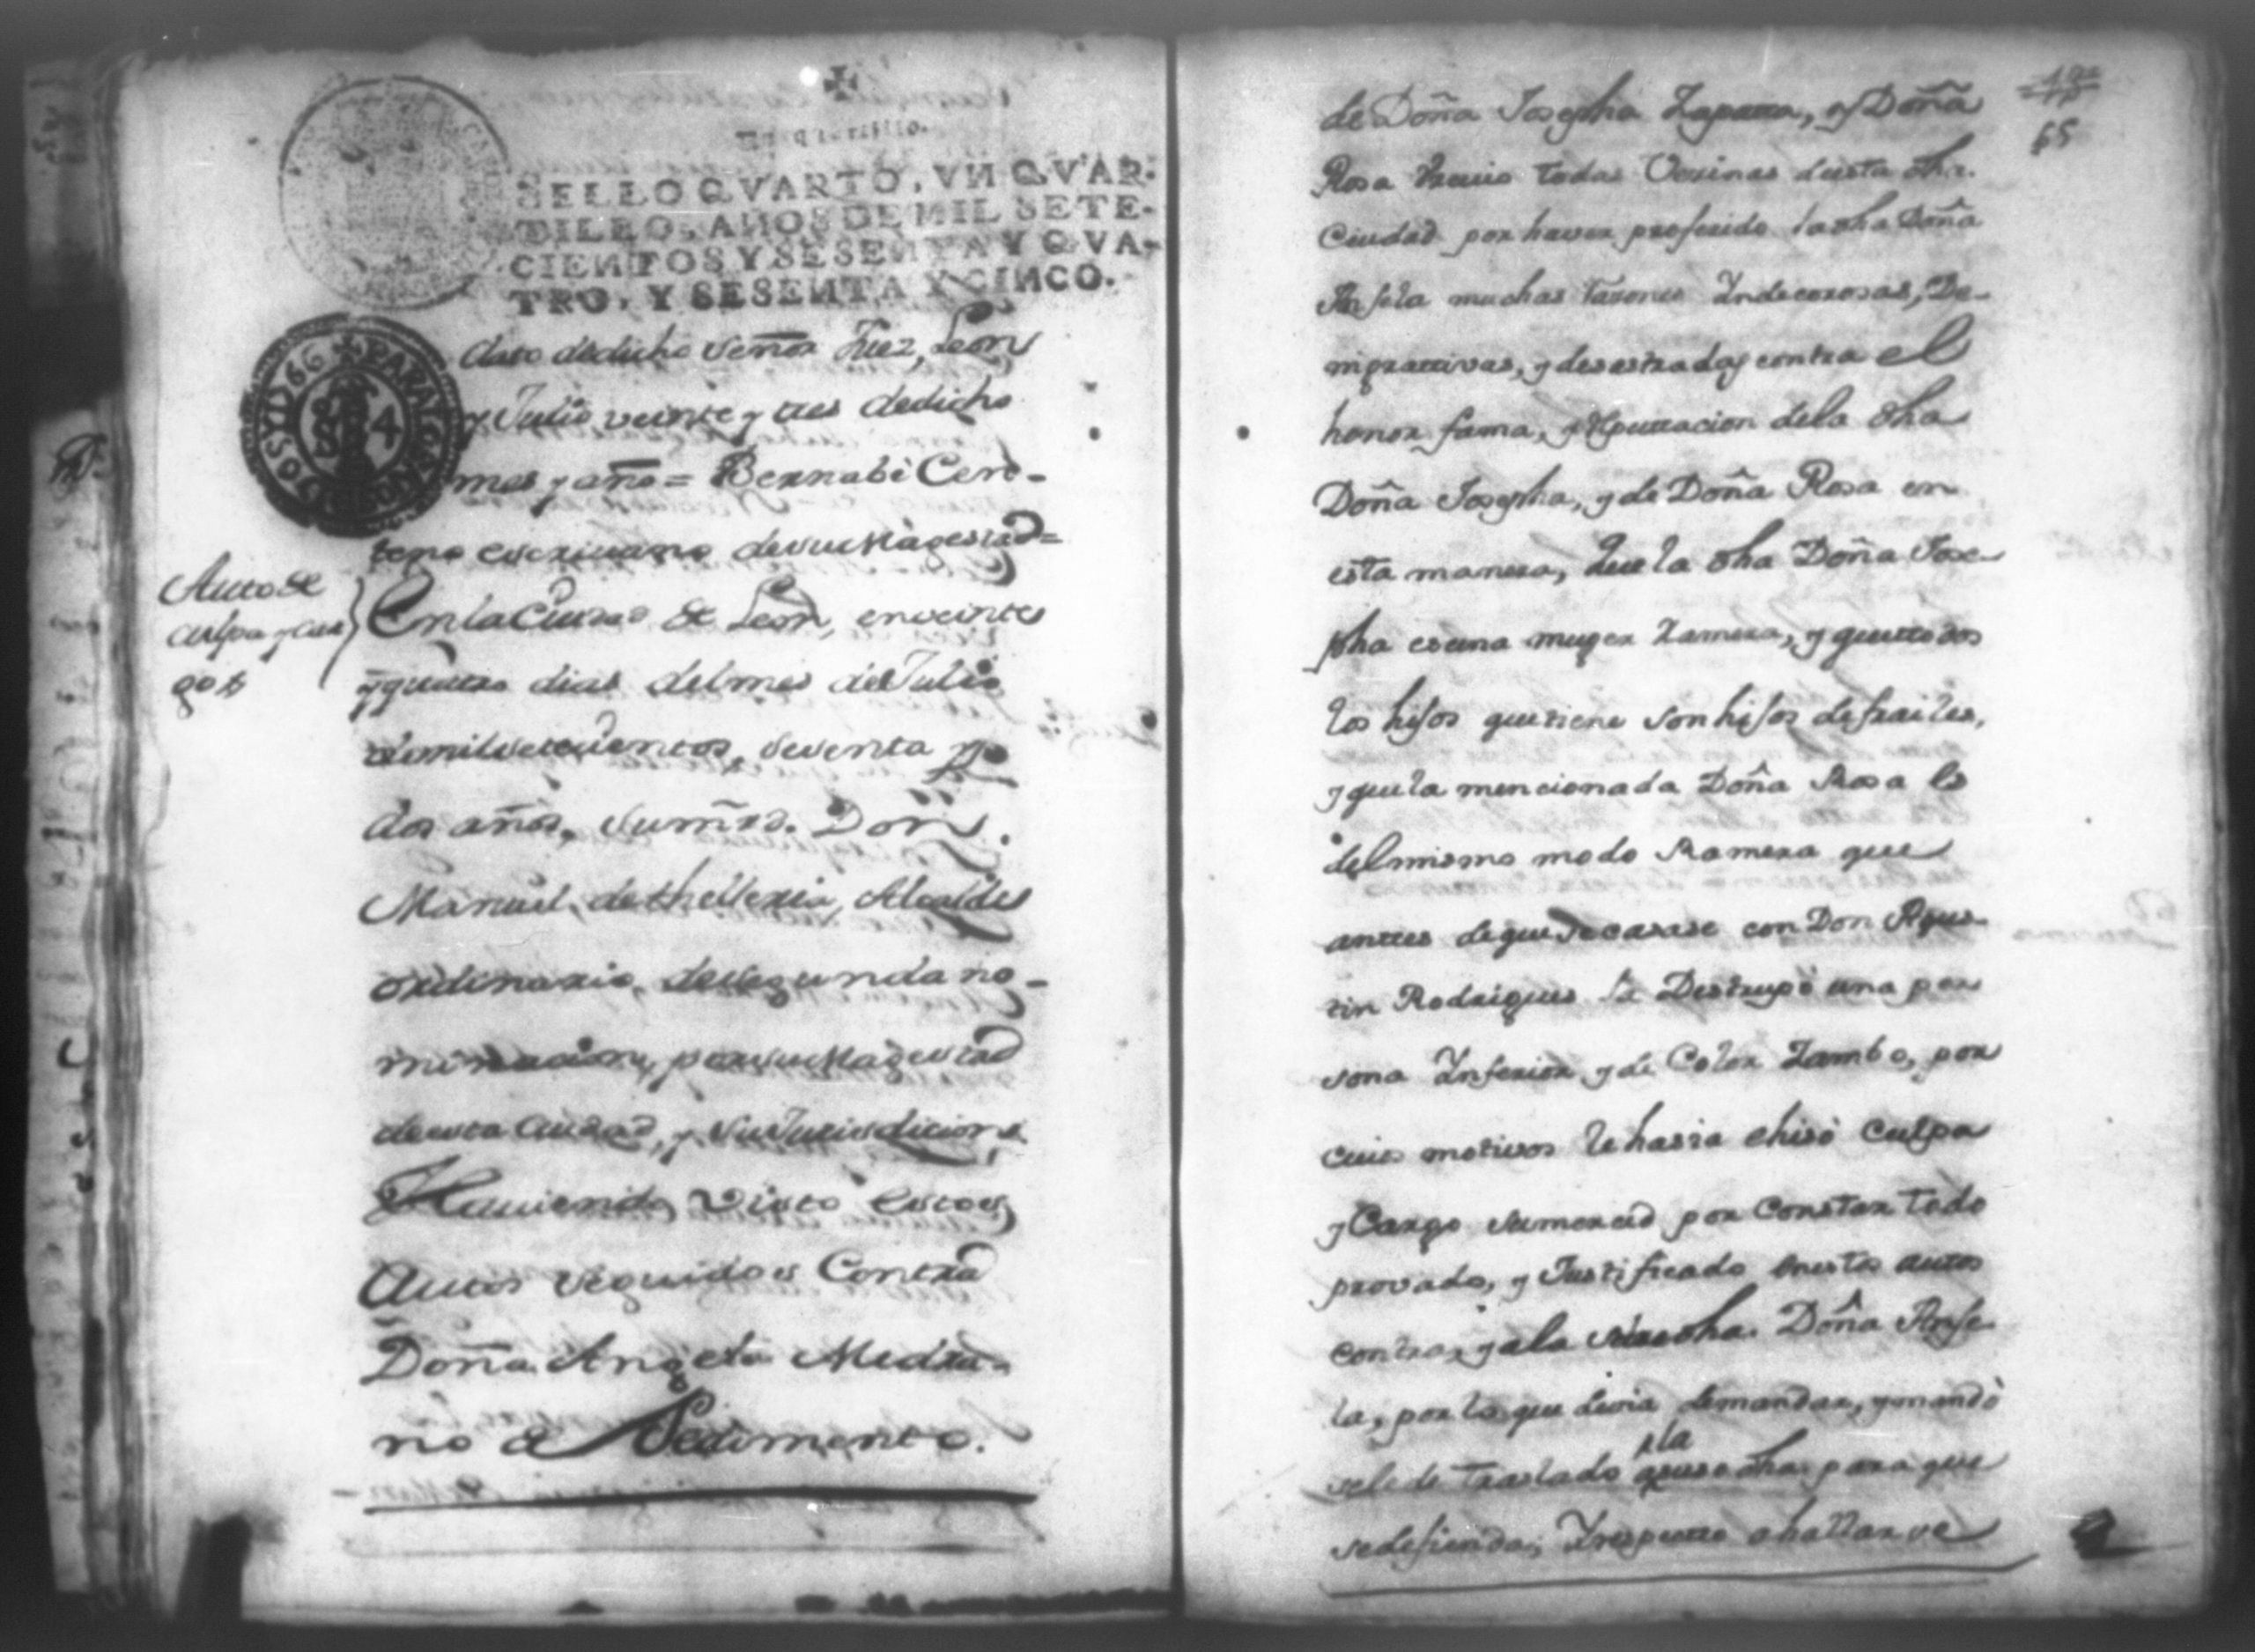 Un quartillo.
SELLO QVARTO, VN QVAR-
TILLO, AÑOS DE MIL SETE-
CIENTOS Y SESENTA Y QVA-
TRO, Y SESENTA Y CINCO.
PARA LOS AÑOS D 66
dato dedicho Señor Juez, Leon
y Julio veinte y tres dedicho
mes y año = Bernabè Cero-
teno escrivano desuMagestad=
Auto de
culpa y car
gos
En la Ciudad de Leon, en veinte
y quatro dias del mes de Julio
de mil setecientos, sesenta y
dos años, sumrd. Don
Manuel de thelleria, Alcalde
ordinario, desegunda no-
minacion, por su Magestad
de esta Ciudad, y su Jurisdicion,
Haviendo visto estos
Autos seguidos Contra
Doña Angela Medra-
no a Pedimento.
65
de Doña Josepha Zapatta, y Doña
Rosa todas Vezinas de esta dha.
Ciudad por haver proferido la dha Doña
Ansela muchas razones Indecorosas, De-
nigrattivas, y desastradas contra el
honor fama, y Reputtacion dela dha
Doña Josepha, y de Doña Rosa en
esta manera, Que la dha Doña Jose-
pha es una muger Ramera, y que ttodos
los hijos que tiene son hijos de frailes,
y que la mencionada Doña Rosa es
del mismo modo Ramera que
anttes de que se casase con Don Agus-
tin Rodrigues la Destrupó una per
sona Inferior y de Color Zambo, por
cuios motivos le hasia e hisó Culpa
y Cargo sumerced por Constar todo
provado, y Justificado en estos autos
contra, y a la Dha. Doña Anse
la, por lo que devia demandar, y mandò
se le de traslado a la dha. para que
se defienda; Y respecto a hallarse